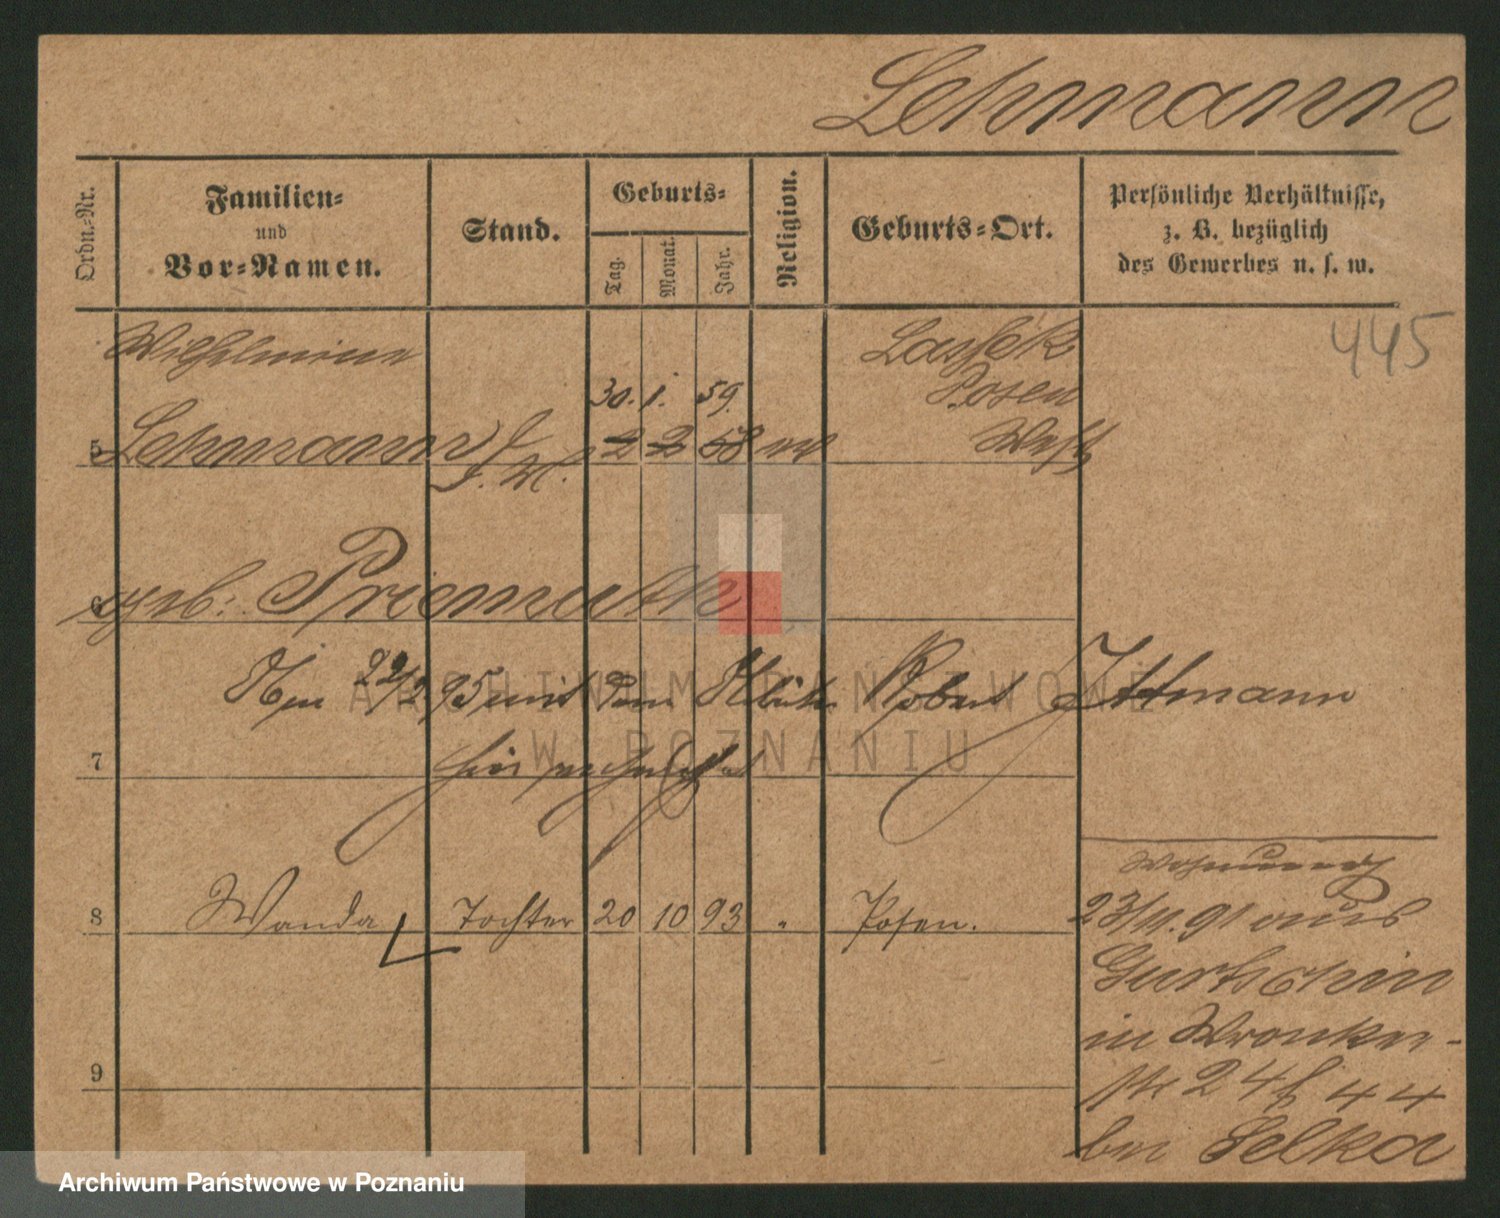 Lehmann
Ordn.-Nr.
Familien-
und
Vor-Namen.
Stand.
Geburts-
Tag.
Monat.
Jahr.
Religion.
Geburts-Ort.
Persönliche Verhältnisse,
z. B. bezüglich
des Gewerbes u. s. w.
445
Wilhelmine
Lassek
30. 1. 59.
Posen
5 Lehmann 2 2 58 West
6 geb. Priemuth
Am 22/2 95 mit dem Robert Ittmann
7 hier
8 Wanda Tochter 20 10 93 " Posen.
9
Wohnung
23/11. 91 aus
Gurtschin
in Wronker-
str 24 b 44
bei Selka
ARCHIWUM PAŃSTWOWE
W POZNANIU
Archiwum Państwowe w Poznaniu